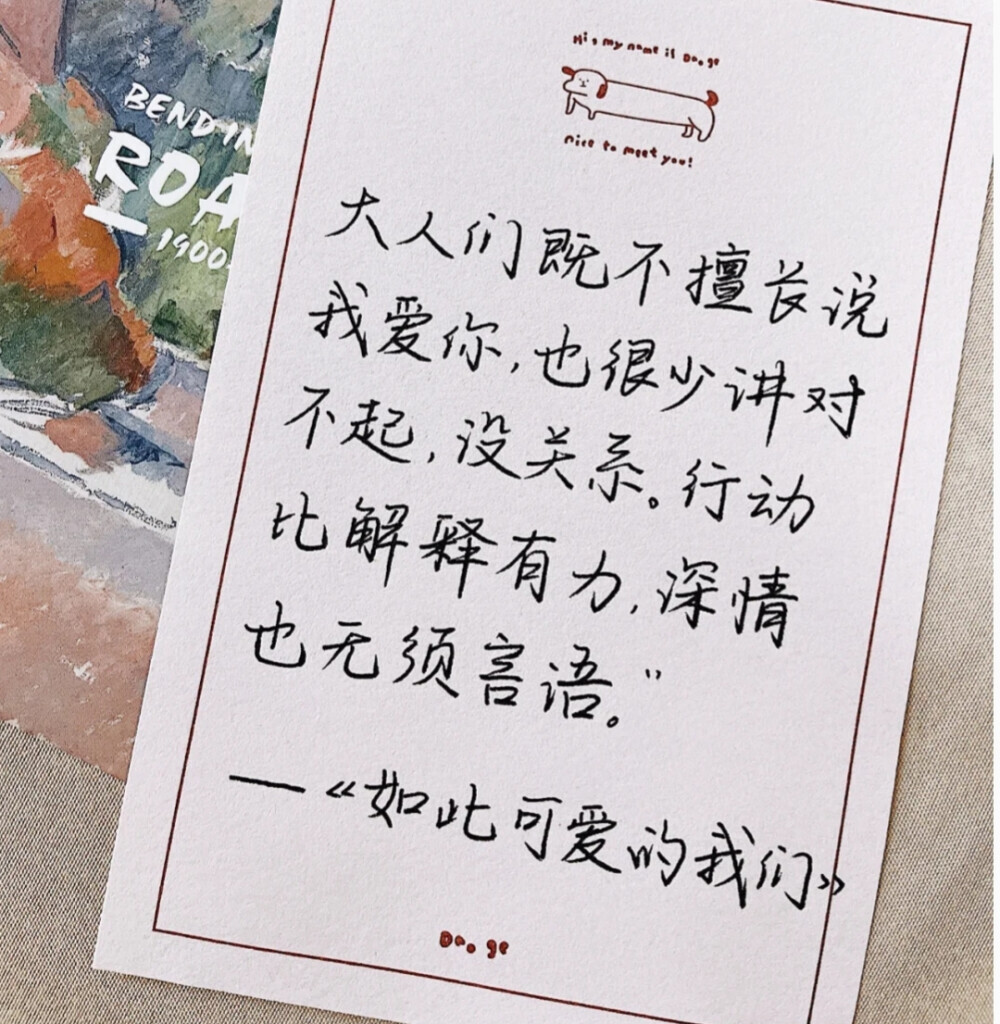 BENDIN
ROA
1900
Hi, my name is Dooge
nice to meet you!
大人们既不擅长说
我爱你，也很少讲对
不起，没关系。行动
比解释有力，深情
也无须言语。”
—《如此可爱的我们》
Dooge